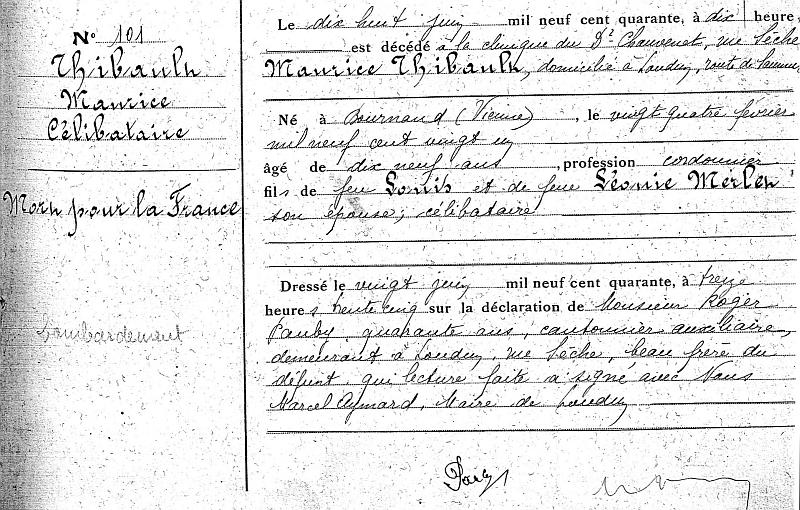 N° 101
Thibault
Maurice
Célibataire
Mort pour la France
bombardement
Le dix huit juin mil neuf cent quarante, à dix heure
est décédé à la clinique du Dr Chauvenet, rue Sèche
Maurice Thibault, domicilié à Loudun, route de Saumur
Né à Bournand (Vienne), le vingt quatre février
mil neuf cent vingt un
âgé de dix neuf ans, profession cordonnier
fils de feu Louis et de feue Léonie Merlen
son épouse; célibataire
Dressé le vingt juin mil neuf cent quarante, à treize
heures trente cinq sur la déclaration de Monsieur Roger
quarante ans, cantonnier auxiliaire,
demeurant à Loudun, rue Sèche, beau frère du
défunt, qui lecture faite a signé avec Nous
Marcel Aymard, Maire de Loudun